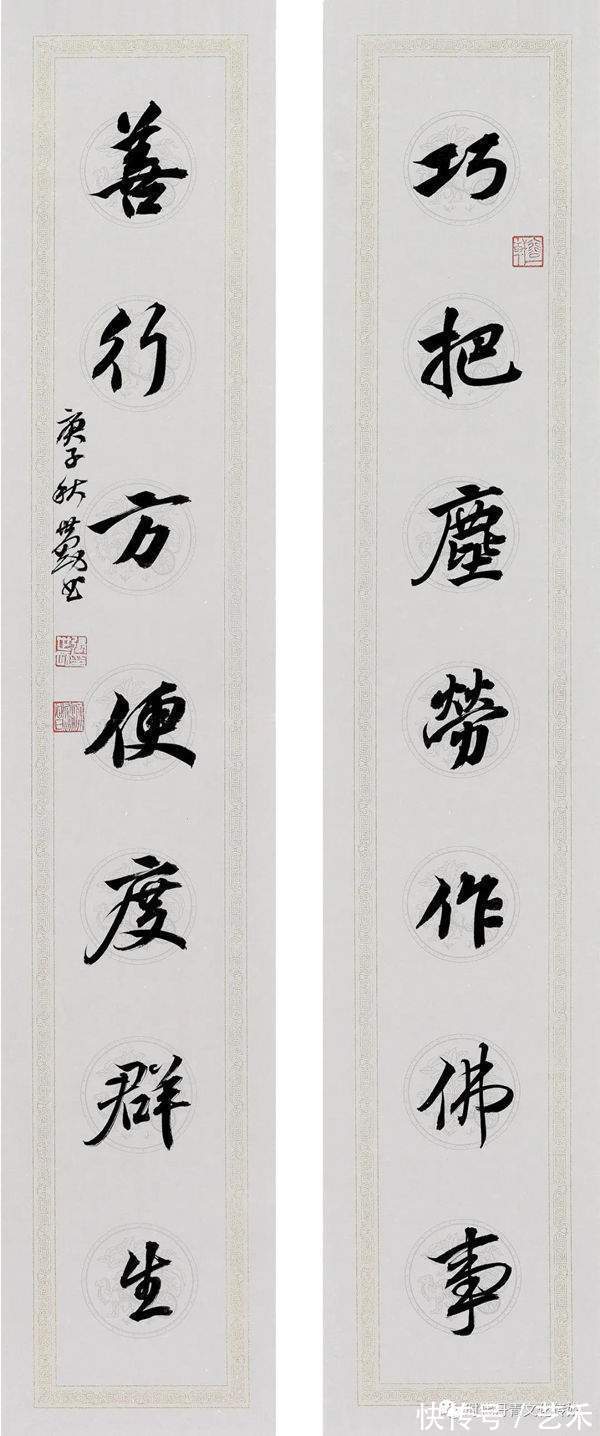 巧把塵勞作佛事
善行方便度群生
庚子秋
快传号 / 艺禾